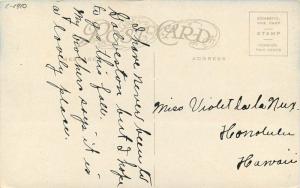 c-1910
POST CARD
ADDRESS
DOMESTIC
ONE CENT
STAMP
FOREIGN
TWO CENTS
I have never been to
Galveston but I hope
to go this fall.
My brother says it is
a lovely place.
Miss Violet de la Nux.
Honolulu
Hawaii